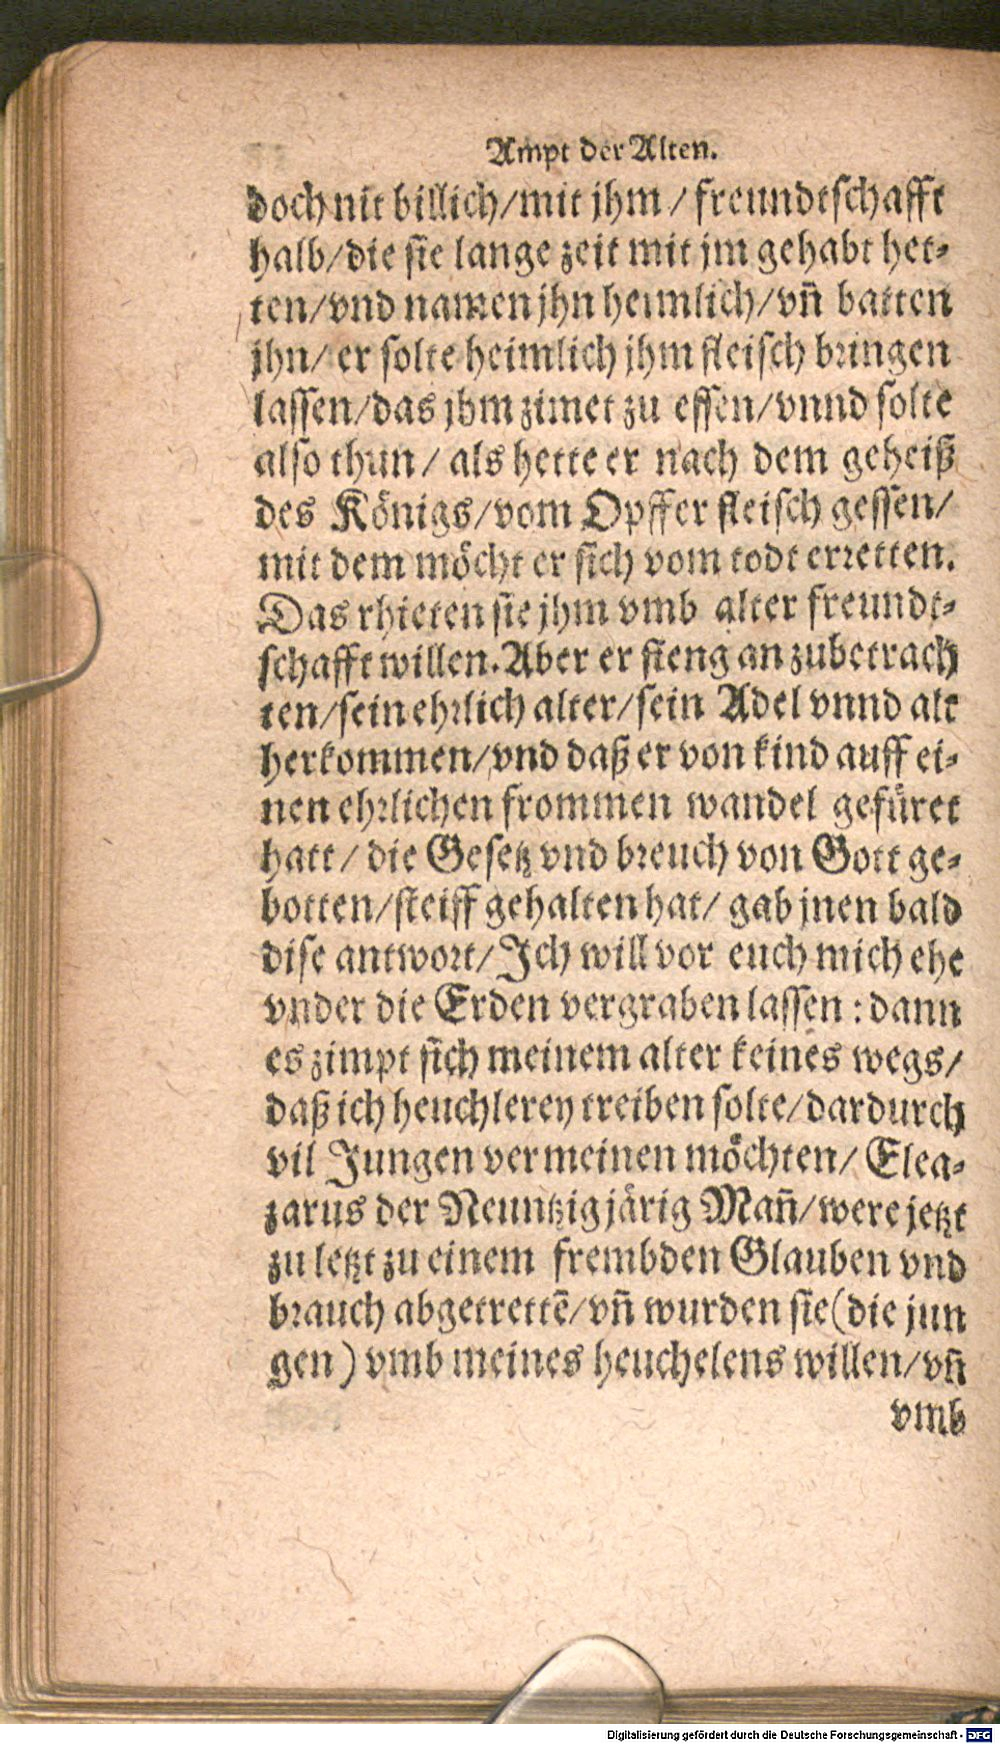 Ampt der Alten.
doch nit billich/mit jhm / freundtschafft
halb/die sie lange zeit mit jm gehabt het-
ten/vnd namen jhn heimlich/vñ batten
jhn/ er solte heimlich jhm fleisch bringen
lassen/das jhm zimet zu essen/vnnd solte
also thun / als hette er nach dem geheiß
des Königs/vom Opffer fleisch gessen/
mit dem möcht er sich vom todt erretten.
Das rhieten sie jhm vmb alter freundt-
schafft willen. Aber er fieng an zubetrach
ten/sein ehrlich alter/sein Adel vnnd alt
herkommen/vnd daß er von kind auff ei-
nen ehrlichen frommen wandel gefüret
hatt / die Gesetz vnd breuch von Gott ge-
botten/steiff gehalten hat/ gab jnen bald
dise antwort/Ich will vor euch mich ehe
vnder die Erden vergraben lassen : dann
es zimpt sich meinem alter keines wegs/
daß ich heuchlerey treiben solte/dardurch
vil Jungen vermeinen möchten/ Elea-
zarus der Neuntzigjärig Mañ/were jetzt
zu letzt zu einem frembden Glauben vnd
brauch abgetrettē/vñ wurden sie (die jun
gen ) vmb meines heuchelens willen/vñ
vmb
Digitalisierung gefördert durch die Deutsche Forschungsgemeinschaft - DFG